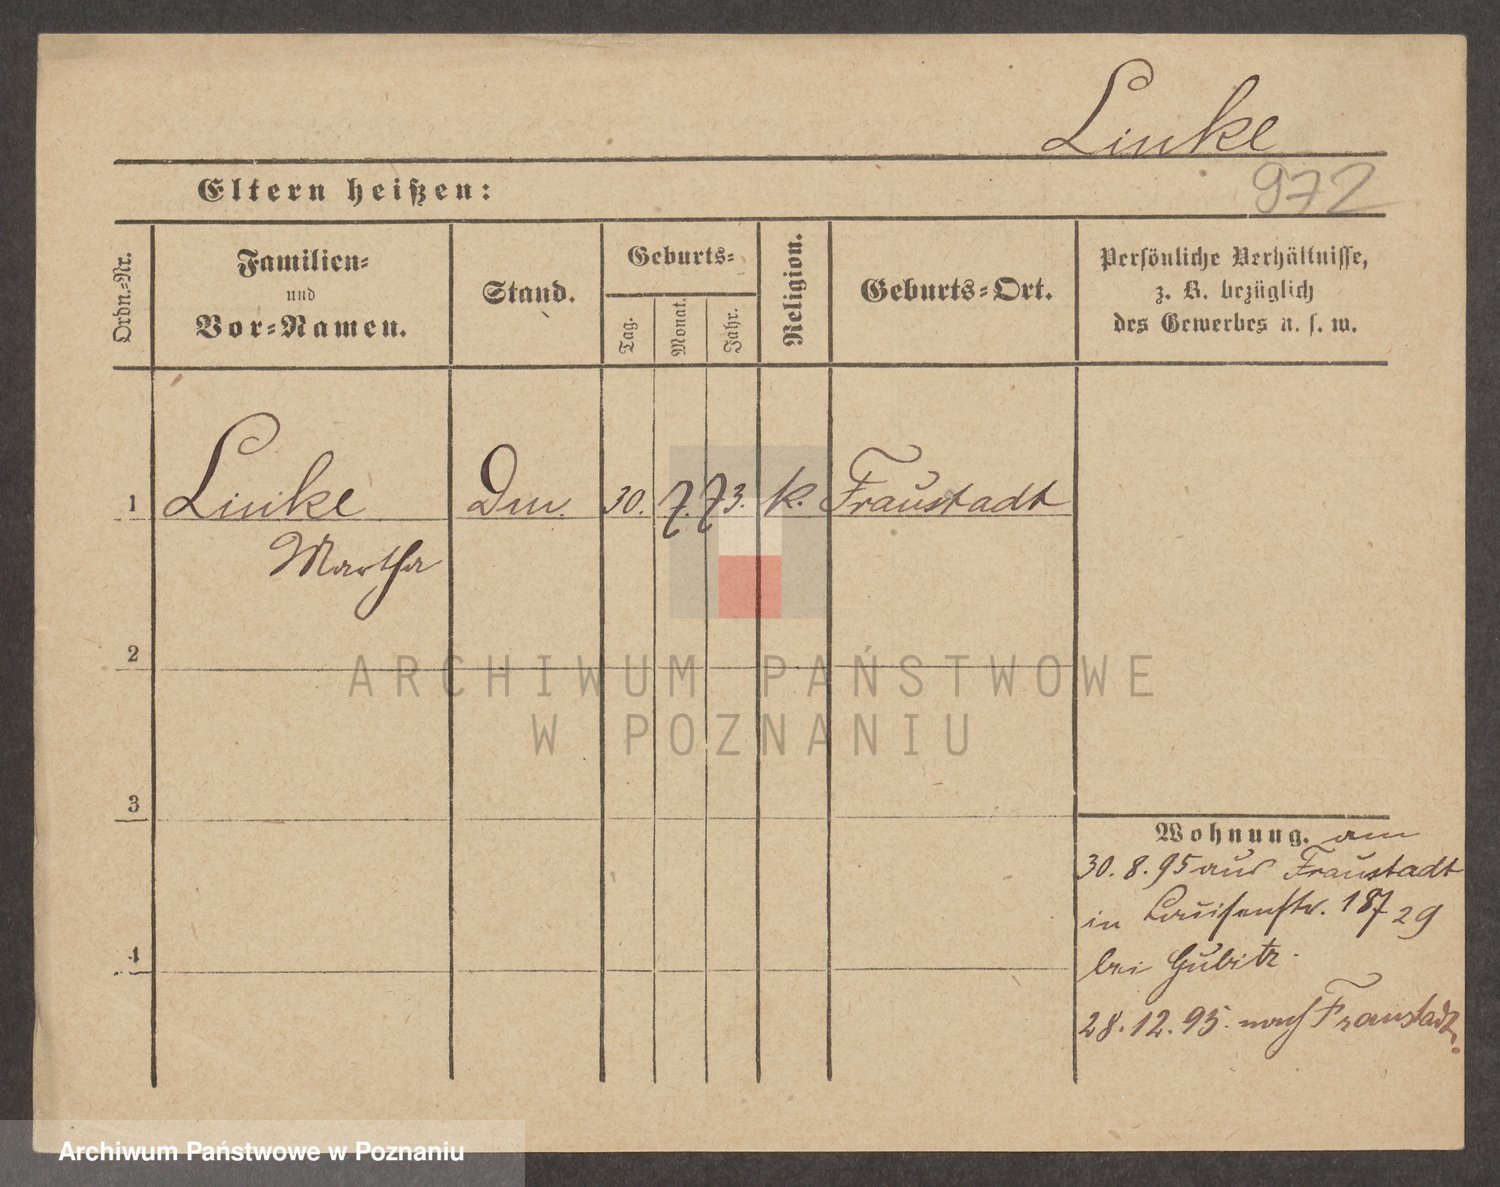 Linke
Eltern heißen:
972
Ordn.-Nr.
Familien-
und
Vor-Namen.
Stand.
Geburts-
Tag.
Monat.
Jahr.
Religion.
Geburts-Ort.
Persönliche Verhältnisse,
z. B. bezüglich
des Gewerbes u. s. w.
1 Linke Dm. 30. 7. 73. k. Fraustadt
Martha
2
ARCHIWUM PAŃSTWOWE
W POZNANIU
3
Wohnung. am
30. 8. 95 aus Fraustadt
in Louisenstr. 187 29
bei Gubitz.
4
28. 12. 95. nach Fraustadt.
Archiwum Państwowe w Poznaniu